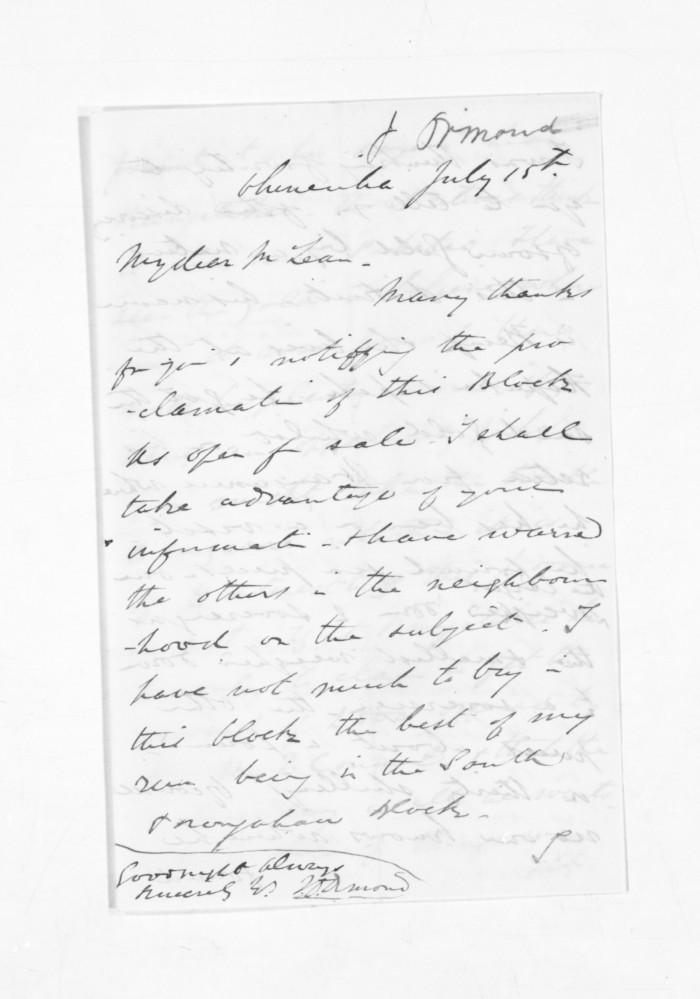 J Ormond
July 15th.
My dear McLean -
Many thanks
for your notifying the pro
-clamation of this Block
as open for sale I shall
take advantage of your
information - I have warned
the others in the neighbour
-hood on the subject. I
have not much to buy in
this block the best of my
run being in the South
Block.
Goodnight Always
Sincerely Yrs J D Ormond